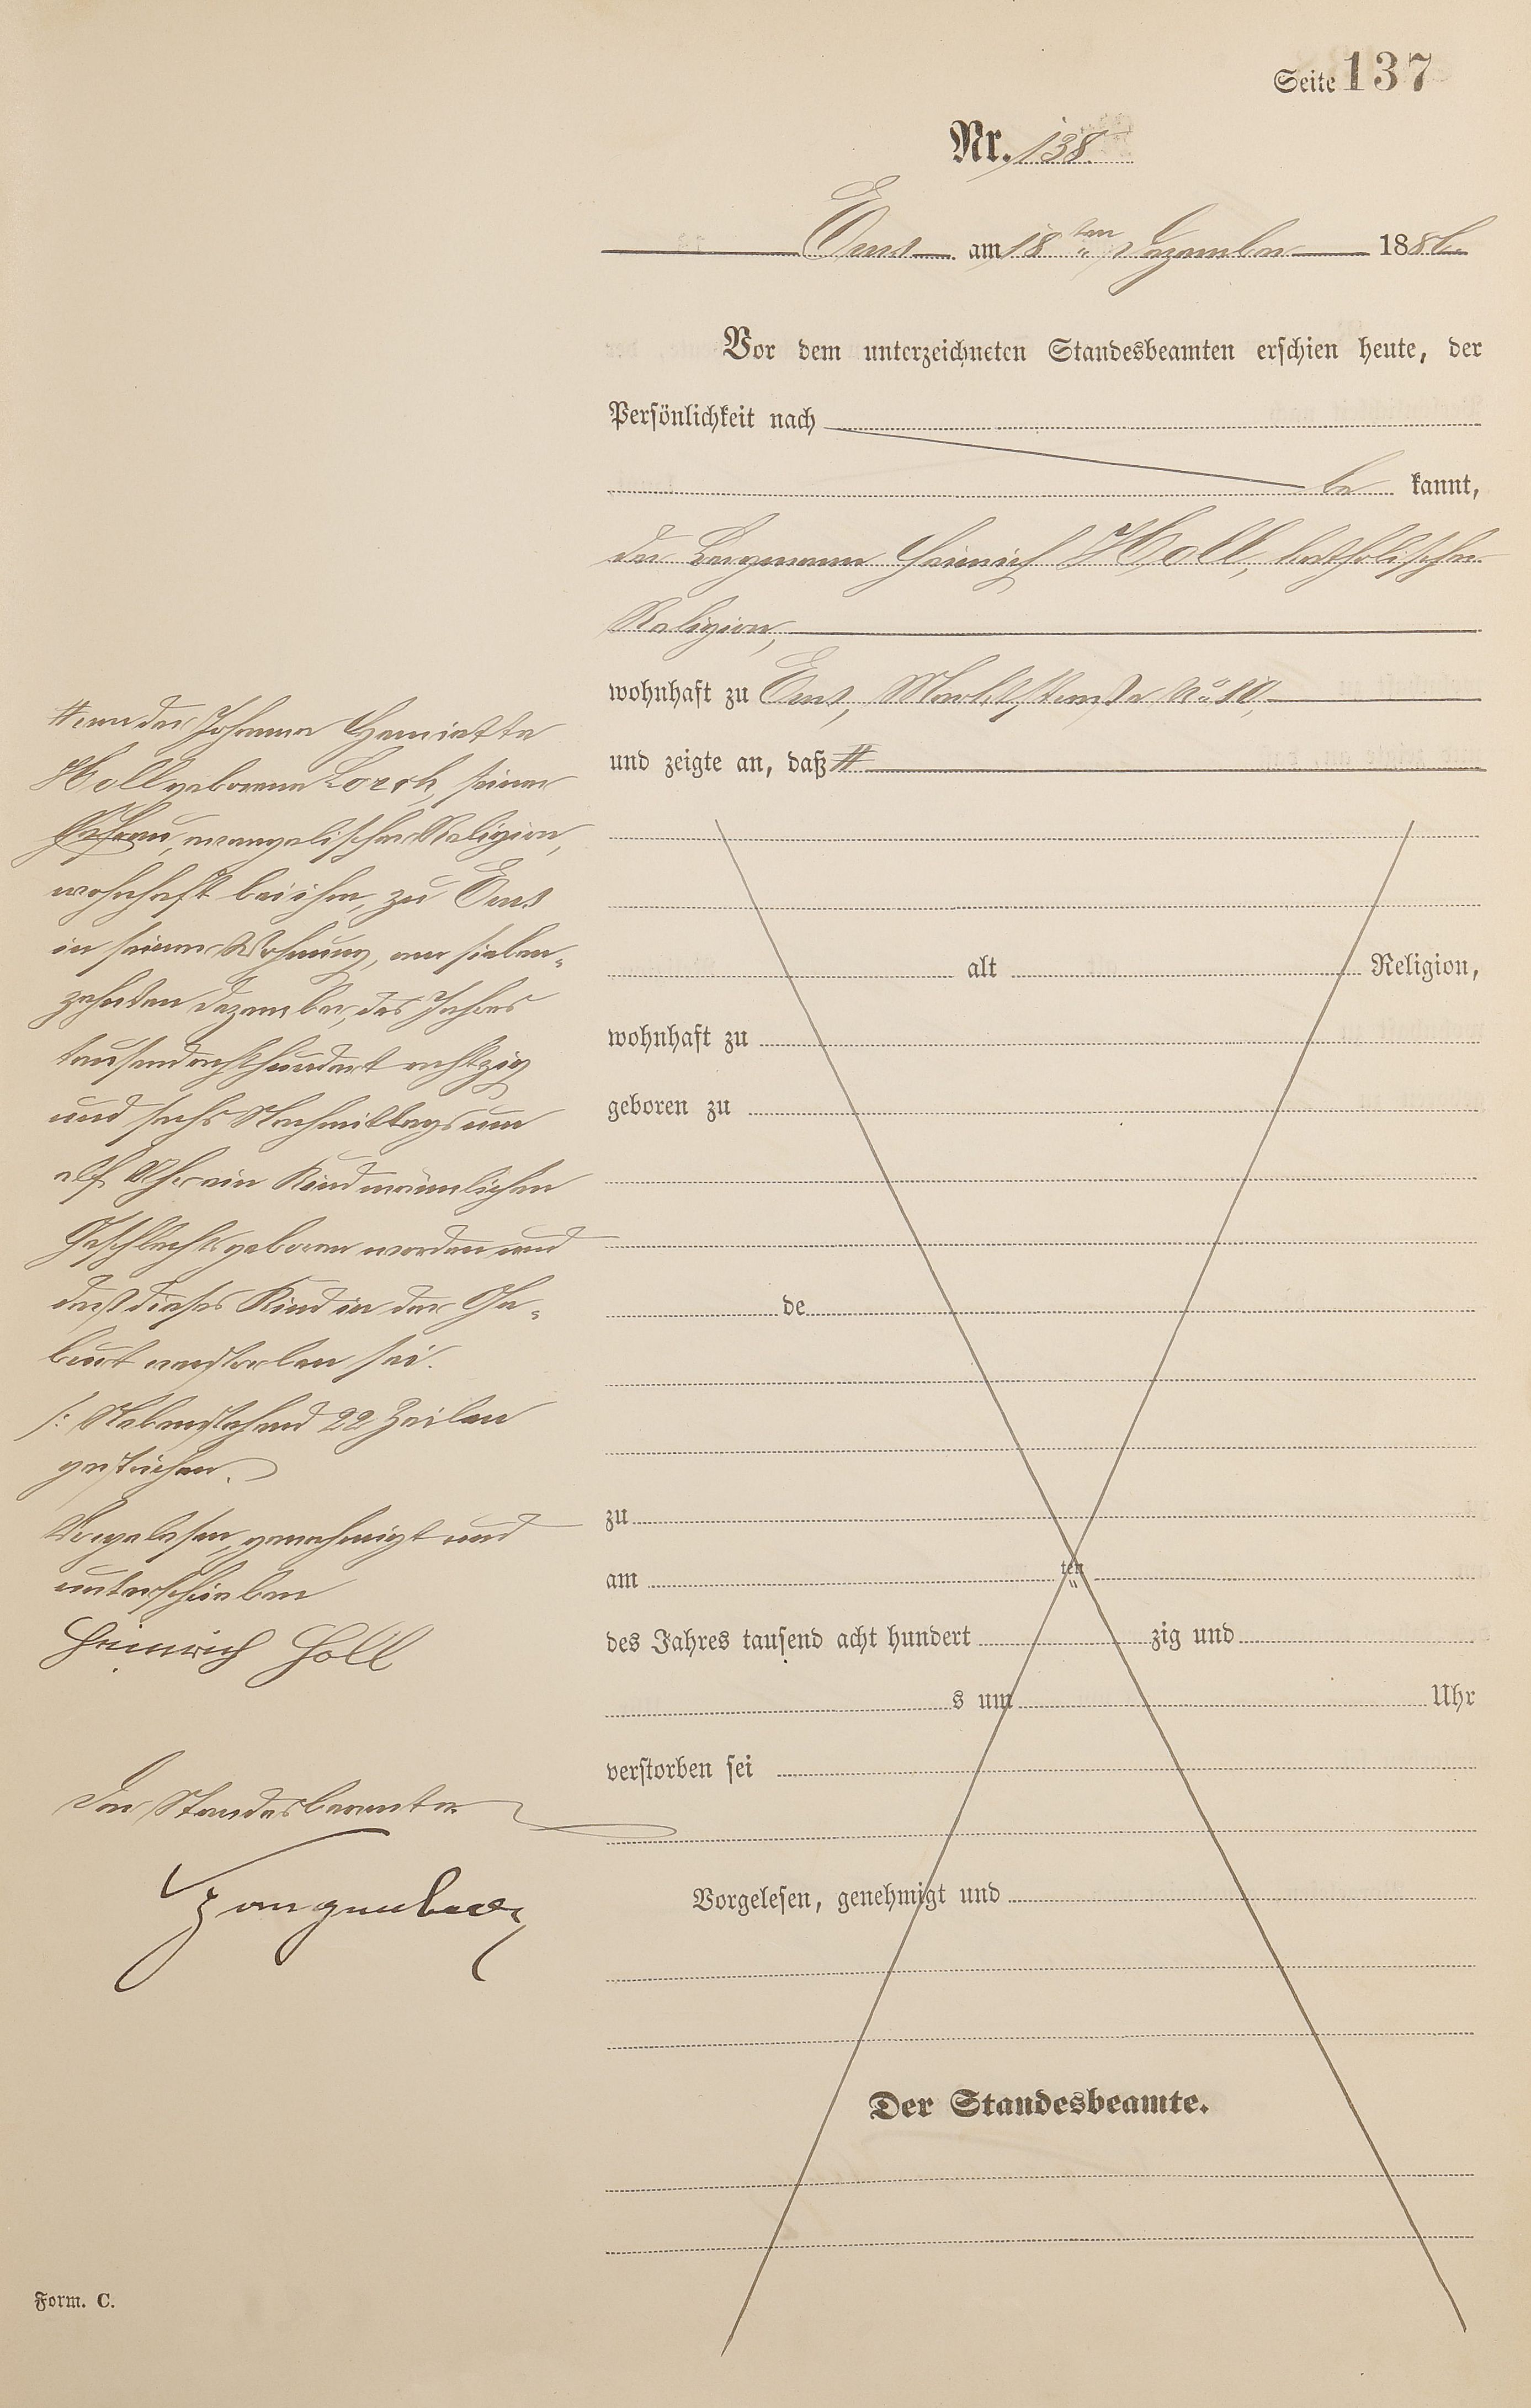 Seite 137
Nr. 138.
Ems am 18ten Dezember 1886.
Vor dem unterzeichneten Standesbeamten erschien heute, der
Persönlichkeit nach
be kannt,
der Bergmann Heinrich Holl, katholischer
Religion,
wohnhaft zu Ems, Marktstraße No 10,
und zeigte an, daß #
# von der Johanna Henriette
Holl geborene Lorch, seiner
Ehefrau, evangelischer Religion,
wohnhaft bei ihm, zu Ems
in seiner Wohnung, am sieben-
zehnten Dezember, des Jahres
tausend acht hundert achtzig
und sechs Nachmittags um
elf Uhr ein Kind männlichen
Geschlechts geboren worden und
daß dieses Kind in der Ge-
burt verstorben sei.
/: Nebenstehend 22 Zeilen
gestrichen.
Vorgelesen, genehmigt und
unterschrieben
Heinrich Holl
Der Standesbeamte
alt Religion,
wohnhaft zu
geboren zu
de
zu
am ten
des Jahres tausend acht hundert zig und
s um Uhr
verstorben sei
Vorgelesen, genehmigt und
Der Standesbeamte.
Form. C.